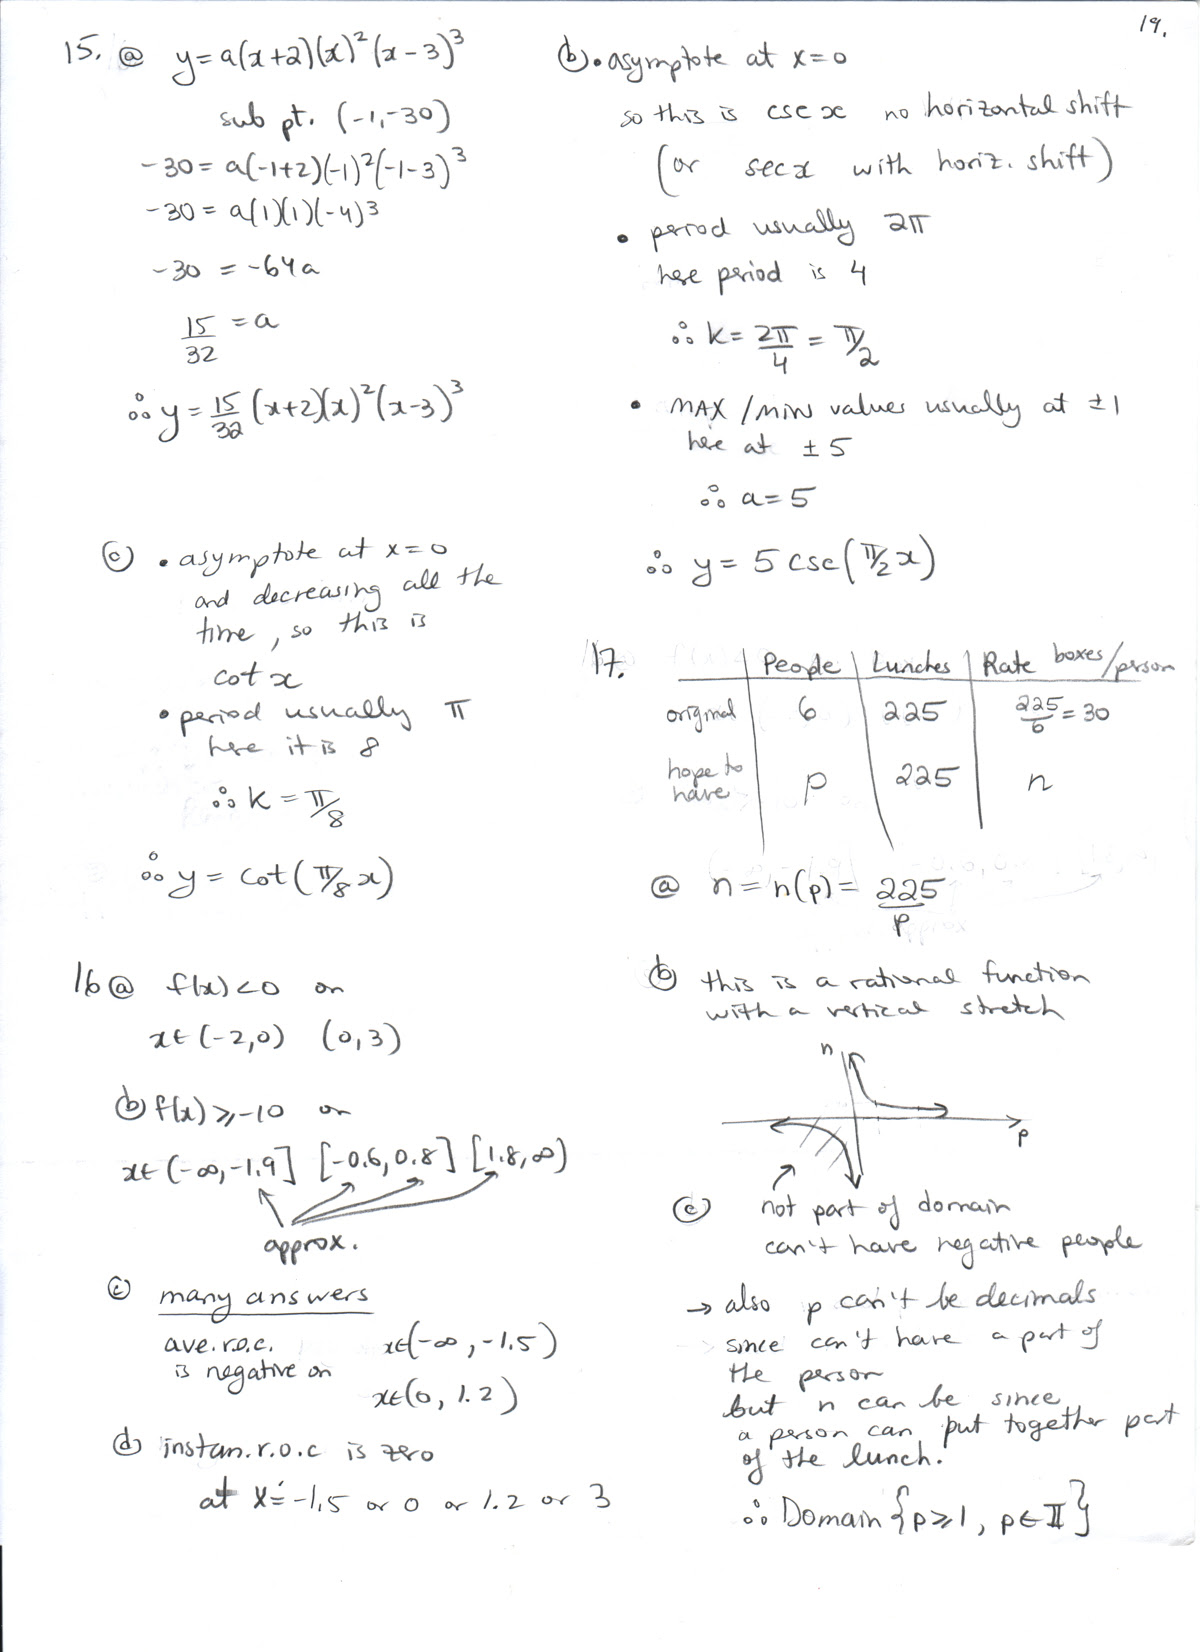 19.
15. ⓐ y = a(x+2)(x)²(x-3)³
sub pt. (-1,-30)
-30 = a(-1+2)(-1)²(-1-3)³
-30 = a(1)(1)(-4)³
-30 = -64a
15/32 = a
∴ y = 15/32 (x+2)(x)²(x-3)³
ⓑ • asymptote at x=0
so this is csc x no horizontal shift
(or sec x with horiz. shift)
• period usually 2π
here period is 4
∴ k = 2π/4 = π/2
• MAX/MIN values usually at ±1
here at ±5
∴ a = 5
∴ y = 5 csc(π/2 x)
ⓒ • asymptote at x=0
and decreasing all the
time, so this is
cot x
• period usually π
here it is 8
∴ k = π/8
∴ y = cot(π/8 x)
16 ⓐ f(x)<0 on
x∈(-2,0) (0,3)
ⓑ f(x)≥-10 on
x∈(-∞,-1.9] [-0.6,0.8] [1.8,∞)
approx.
ⓒ many answers
ave.r.o.c. x∈(-∞,-1.5)
is negative on x∈(0,1.2)
ⓓ instan.r.o.c is zero
at x≐-1.5 or 0 or 1.2 or 3
17. People Lunches Rate boxes/person
original 6 225 225/6 = 30
hope to have p 225 n
ⓐ n = n(p) = 225/p
ⓑ this is a rational function
with a vertical stretch
n
p
ⓒ not part of domain
can't have negative people
→ also p can't be decimals
since can't have a part of
the person
but n can be since
a person can put together part
of the lunch.
∴ Domain {p≥1, p∈I}